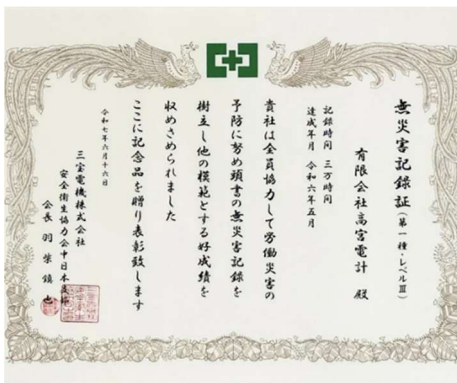 無災害記録証(第一種・レベルⅢ)
有限会社高宮電計 殿
記録時間 三万時間
達成年月 令和六年五月
貴社は全員協力して労働災害の
予防に努め頭書の無災害記録を
樹立し他の模範とする好成績を
収めきめられました
ここに記念品を贈り表彰致します
令和七年六月十六日
三宝電機株式会社
安全衛生協力会中日本支部
会長 羽柴鎮